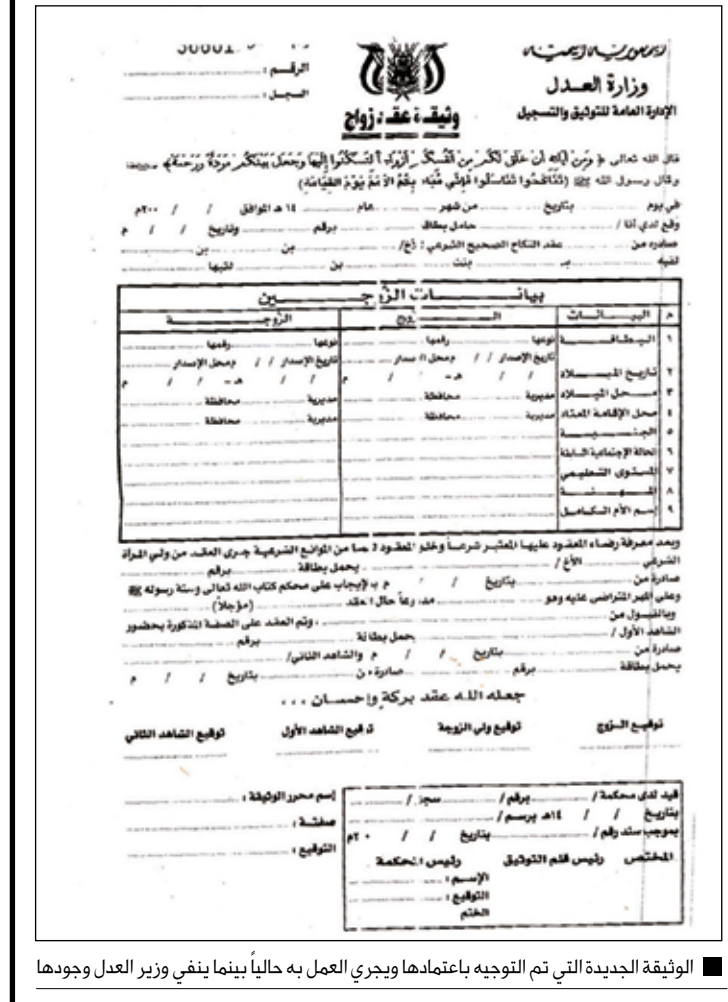 الجمهورية اليمنية
وزارة العدل
الإدارة العامة للتوثيق والتسجيل
الرقم :
السجل :
وثيقة عقد زواج
قال الله تعالى ﴿ ومن آياته أن خلق لكم من أنفسكم أزواجا لتسكنوا إليها وجعل بينكم مودة ورحمة ﴾
وقال رسول الله ﷺ (تناكحوا تناسلوا فإني مباه بكم الأمم يوم القيامة)
في يوم بتاريخ من شهر عام ١٤ هـ الموافق / / ٢٠٠م
وقع لدي أنا / حامل بطاقة برقم وتاريخ / / م
صادرة من عقد النكاح الصحيح الشرعي : لأخ/ بن بن
لقبه بـ بنت بن لقبها
بيانات الزوجين
م البيانات الزوج الزوجة
١ البطاقة نوعها رقمها نوعها رقمها
تاريخ الإصدار / / محل الإصدار تاريخ الإصدار / / محل الإصدار
٢ تاريخ الميلاد / / هـ - / / م / / هـ - / / م
٣ محل الميلاد مديرية محافظة مديرية محافظة
٤ محل الإقامة المعتاد مديرية محافظة مديرية محافظة
٥ الجنسية
٦ الحالة الإجتماعية السابقة
٧ المستوى التعليمي
٨ المهنة
٩ إسم الأم الكامل
وبعد معرفة رضاء المعقود عليها المعتبر شرعاً وخلو المعقود لهما من الموانع الشرعية جرى العقد من ولي المرأة
الشرعي الأخ / يحمل بطاقة برقم
صادرة من بتاريخ / / م بالإيجاب على محكم كتاب الله تعالى وسنة رسوله ﷺ
وعلى المهر المتراضى عليه وهو مدفوعاً حال العقد (مؤجلاً)
وبالقبول من ، وتم العقد على الصفة المذكورة بحضور
الشاهد الأول / يحمل بطاقة برقم
صادرة من بتاريخ / / م والشاهد الثاني/
يحمل بطاقة برقم صادرة من بتاريخ / / م
جعله الله عقد بركة وإحسان ...
توقيع الزوج توقيع ولي الزوجة توقيع الشاهد الأول توقيع الشاهد الثاني
قيد لدى محكمة / برقم / سجل /
بتاريخ / / ١٤هـ برسم /
بموجب سند رقم / بتاريخ / / ٢٠م
المختص رئيس قلم التوثيق رئيس المحكمة
الإسم :
التوقيع :
الختم
إسم محرر الوثيقة :
صفته :
التوقيع :
الوثيقة الجديدة التي تم التوجيه باعتمادها ويجري العمل به حالياً بينما ينفي وزير العدل وجودها